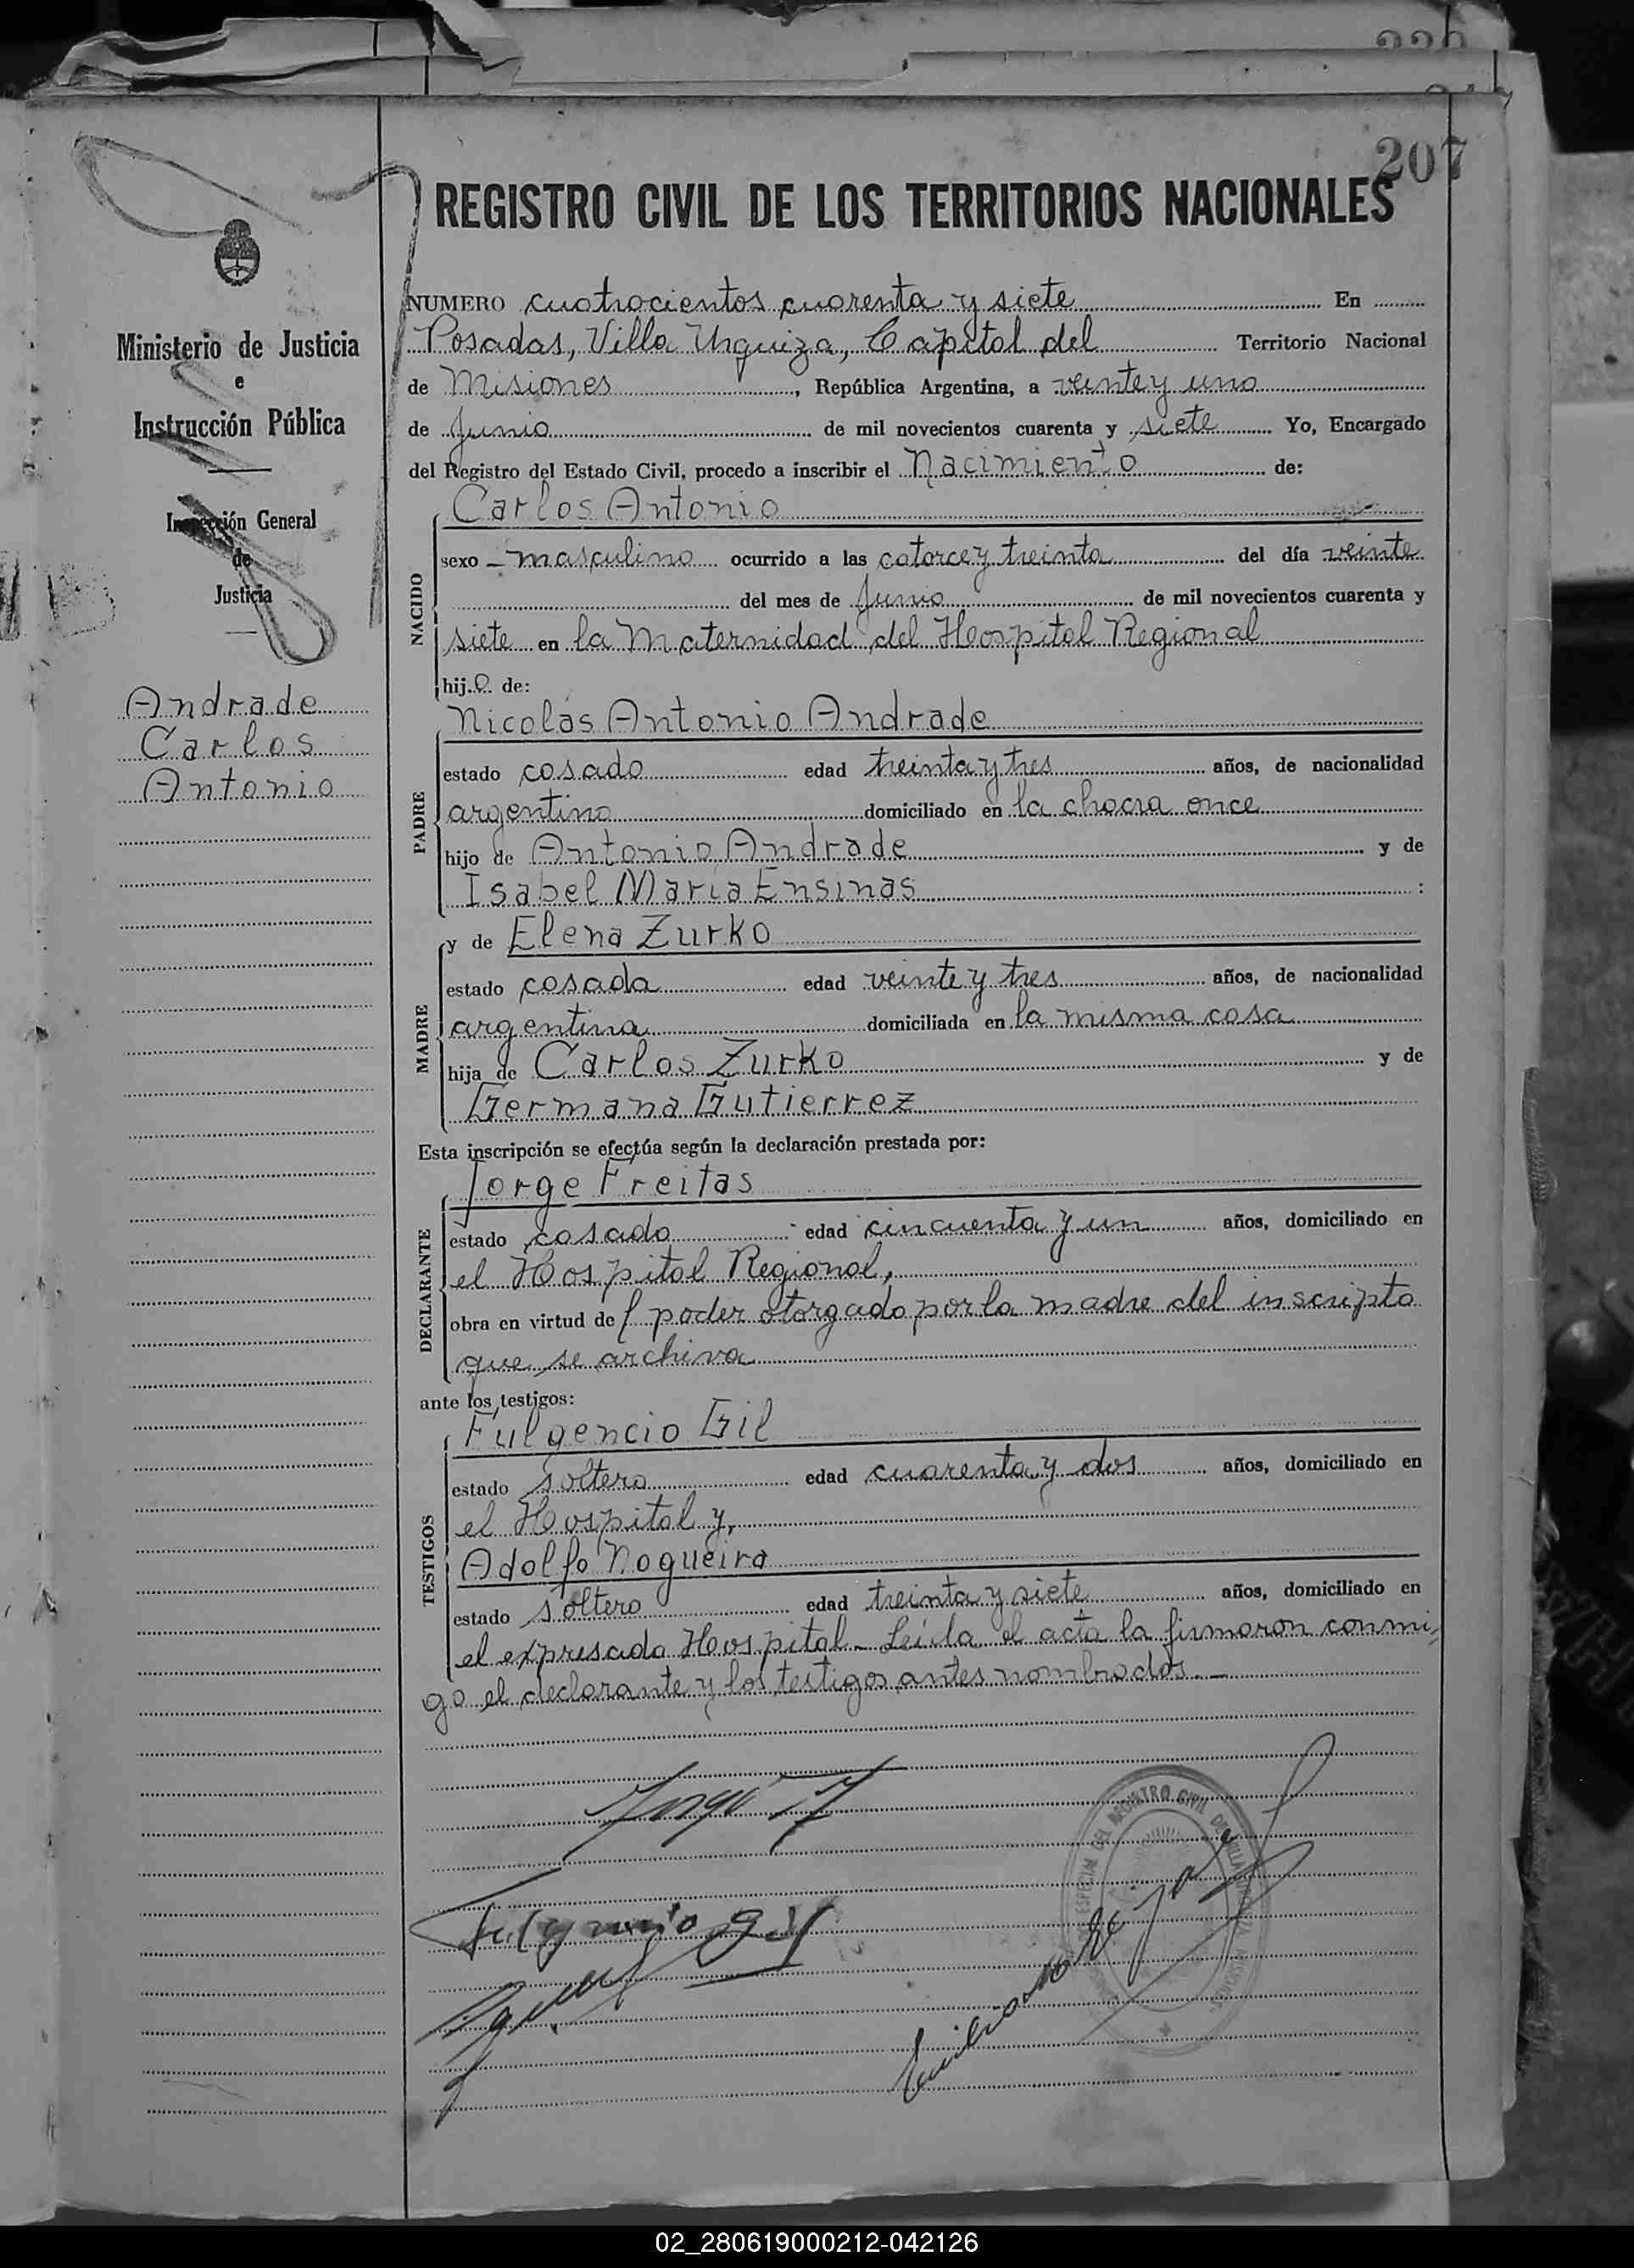 207
REGISTRO CIVIL DE LOS TERRITORIOS NACIONALES
Ministerio de Justicia
e
Instrucción Pública
Inspección General
de
Justicia
Andrade
Carlos
Antonio
NUMERO cuatrocientos cuarenta y siete En
Posadas, Villa Urquiza, Capital del Territorio Nacional
de Misiones, República Argentina, a veinte y uno
de Junio de mil novecientos cuarenta y siete Yo, Encargado
del Registro del Estado Civil, procedo a inscribir el Nacimiento de:
NACIDO
Carlos Antonio
sexo - masculino ocurrido a las catorce y treinta del día veinte
del mes de Junio de mil novecientos cuarenta y
siete en la Maternidad del Hospital Regional
hijo de:
PADRE
Nicolás Antonio Andrade
estado casado edad treinta y tres años, de nacionalidad
argentino domiciliado en la chacra once
hijo de Antonio Andrade y de
Isabel María Ensinas :
MADRE
y de Elena Zurko
estado casada edad veinte y tres años, de nacionalidad
argentina domiciliada en la misma casa
hija de Carlos Zurko y de
Germana Gutierrez
Esta inscripción se efectúa según la declaración prestada por:
DECLARANTE
Jorge Freitas
estado casado edad cincuenta y un años, domiciliado en
el Hospital Regional,
obra en virtud de l poder otorgado por la madre del inscripto
que se archiva
ante los testigos:
TESTIGOS
Fulgencio Gil
estado soltero edad cuarenta y dos años, domiciliado en
el Hospital y,
Adolfo Nogueira
estado soltero edad treinta y siete años, domiciliado en
el expresado Hospital - Leída el acta la firmaron conmi-
go el declarante y los testigos antes nombrados. -
Fulgencio Gil
02_280619000212-042126